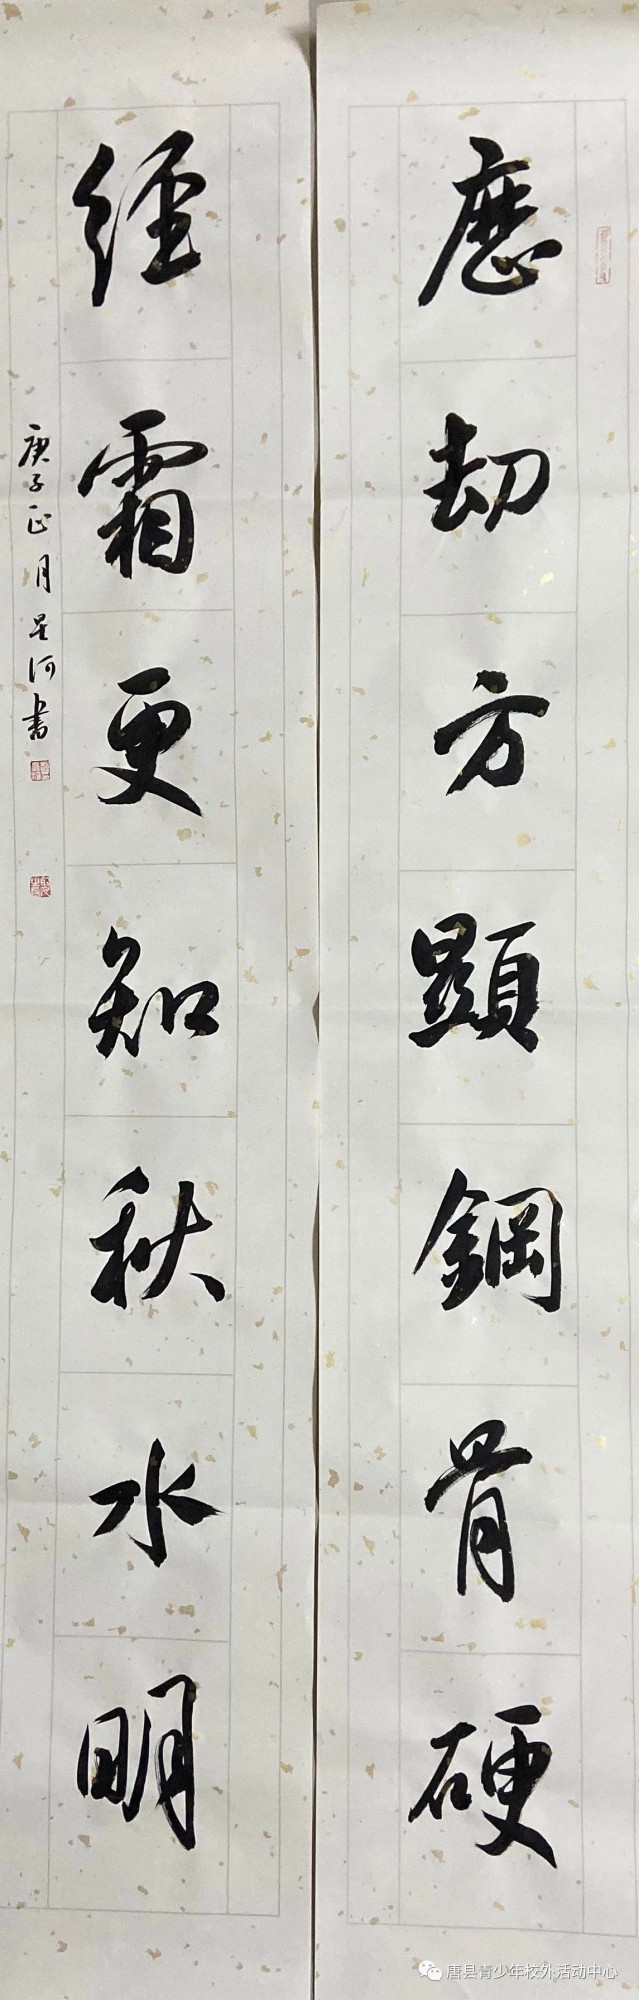 歷劫方顯鋼骨硬
經霜更知秋水明
庚子正月星河書
唐县青少年校外活动中心